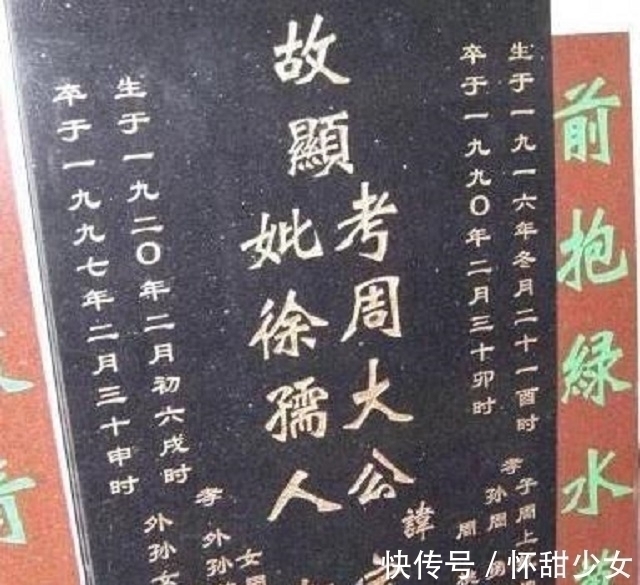 前抱綠水
生于一九一六年冬月二十一酉时
卒于一九九〇年二月三十卯时
孝子周上
孙周
周
故顯
考周大公諱
妣徐孺人
生于一九二〇年二月初六戌时
卒于一九九七年二月三十申时
孝女
外孙
外孙女
快传号 / 怀甜少女